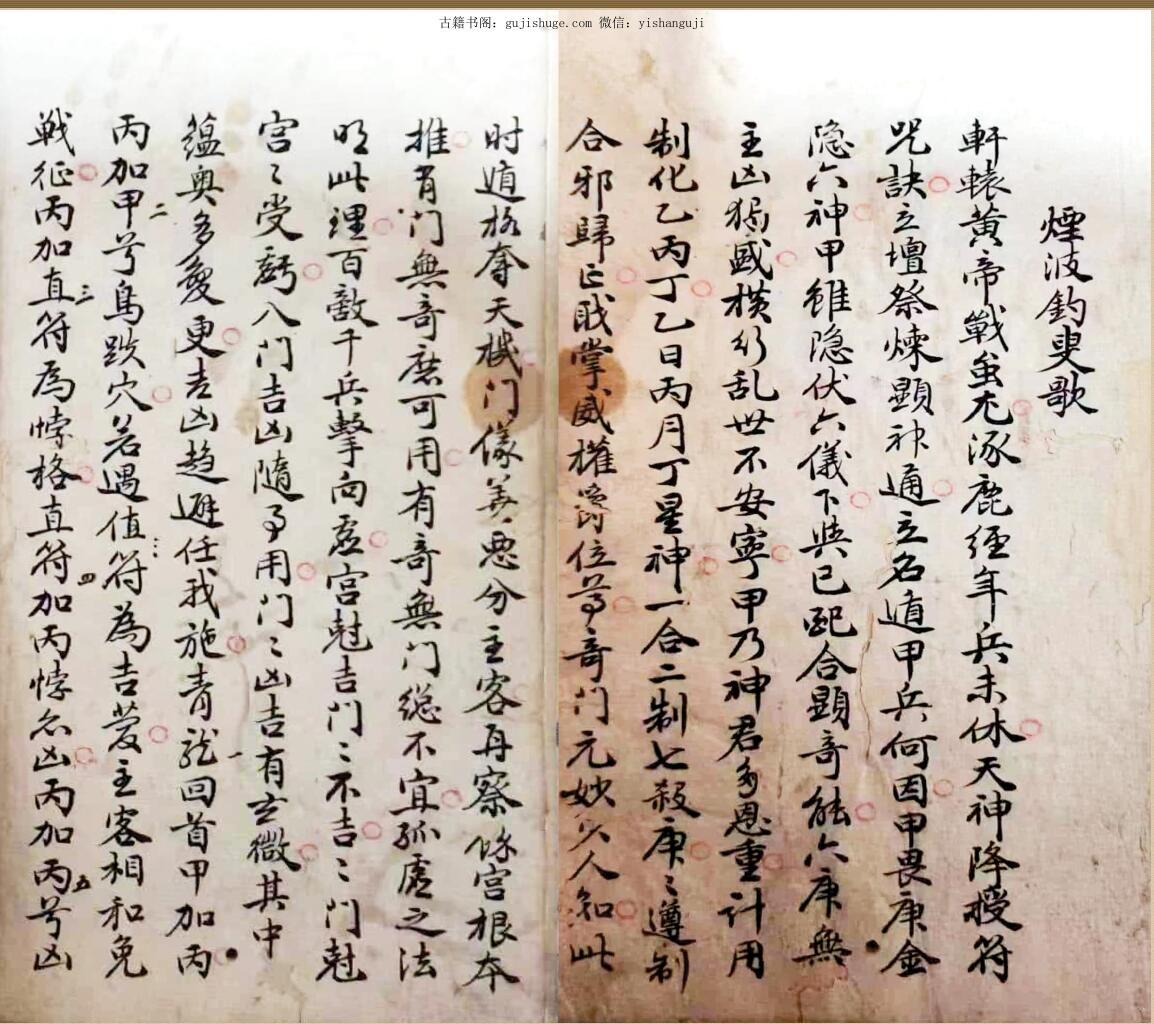 古籍书阁：gujishuge.com 微信：yishanguji
煙波釣叟歌
軒轅黄帝戰蚩尤涿鹿經年兵未休天神降授符
咒訣立壇祭煉顯神通立名遁甲兵何因甲畏庚金
隐六神甲雖隐伏六儀下與已配合顯奇能六庚無
主凶猖盛横行乱世不安寧甲乃神君多恩重計用
制化乙丙丁乙日丙月丁星神一合二制七殺庚〻遵制
合邪歸正戢掌威權爵位尊奇门元妙少人知此
时遁格奪天機门儀善悪分主客再察你宫根本
推有门無奇庶可用有奇無门縂不宜孤虚之法
明此理百敵千兵擊向虚宫尅吉门〻不吉〻门尅
宫〻受虧八门吉凶隨事用门〻凶吉有玄微其中
蕴奥多變更吉凶趋避任我施青龙一回首甲加丙
丙加甲二兮鳥跌穴若遇值符為吉慶主客相和免
戦征丙加直三符為悖格直符四加丙悖名凶丙加丙五兮凶